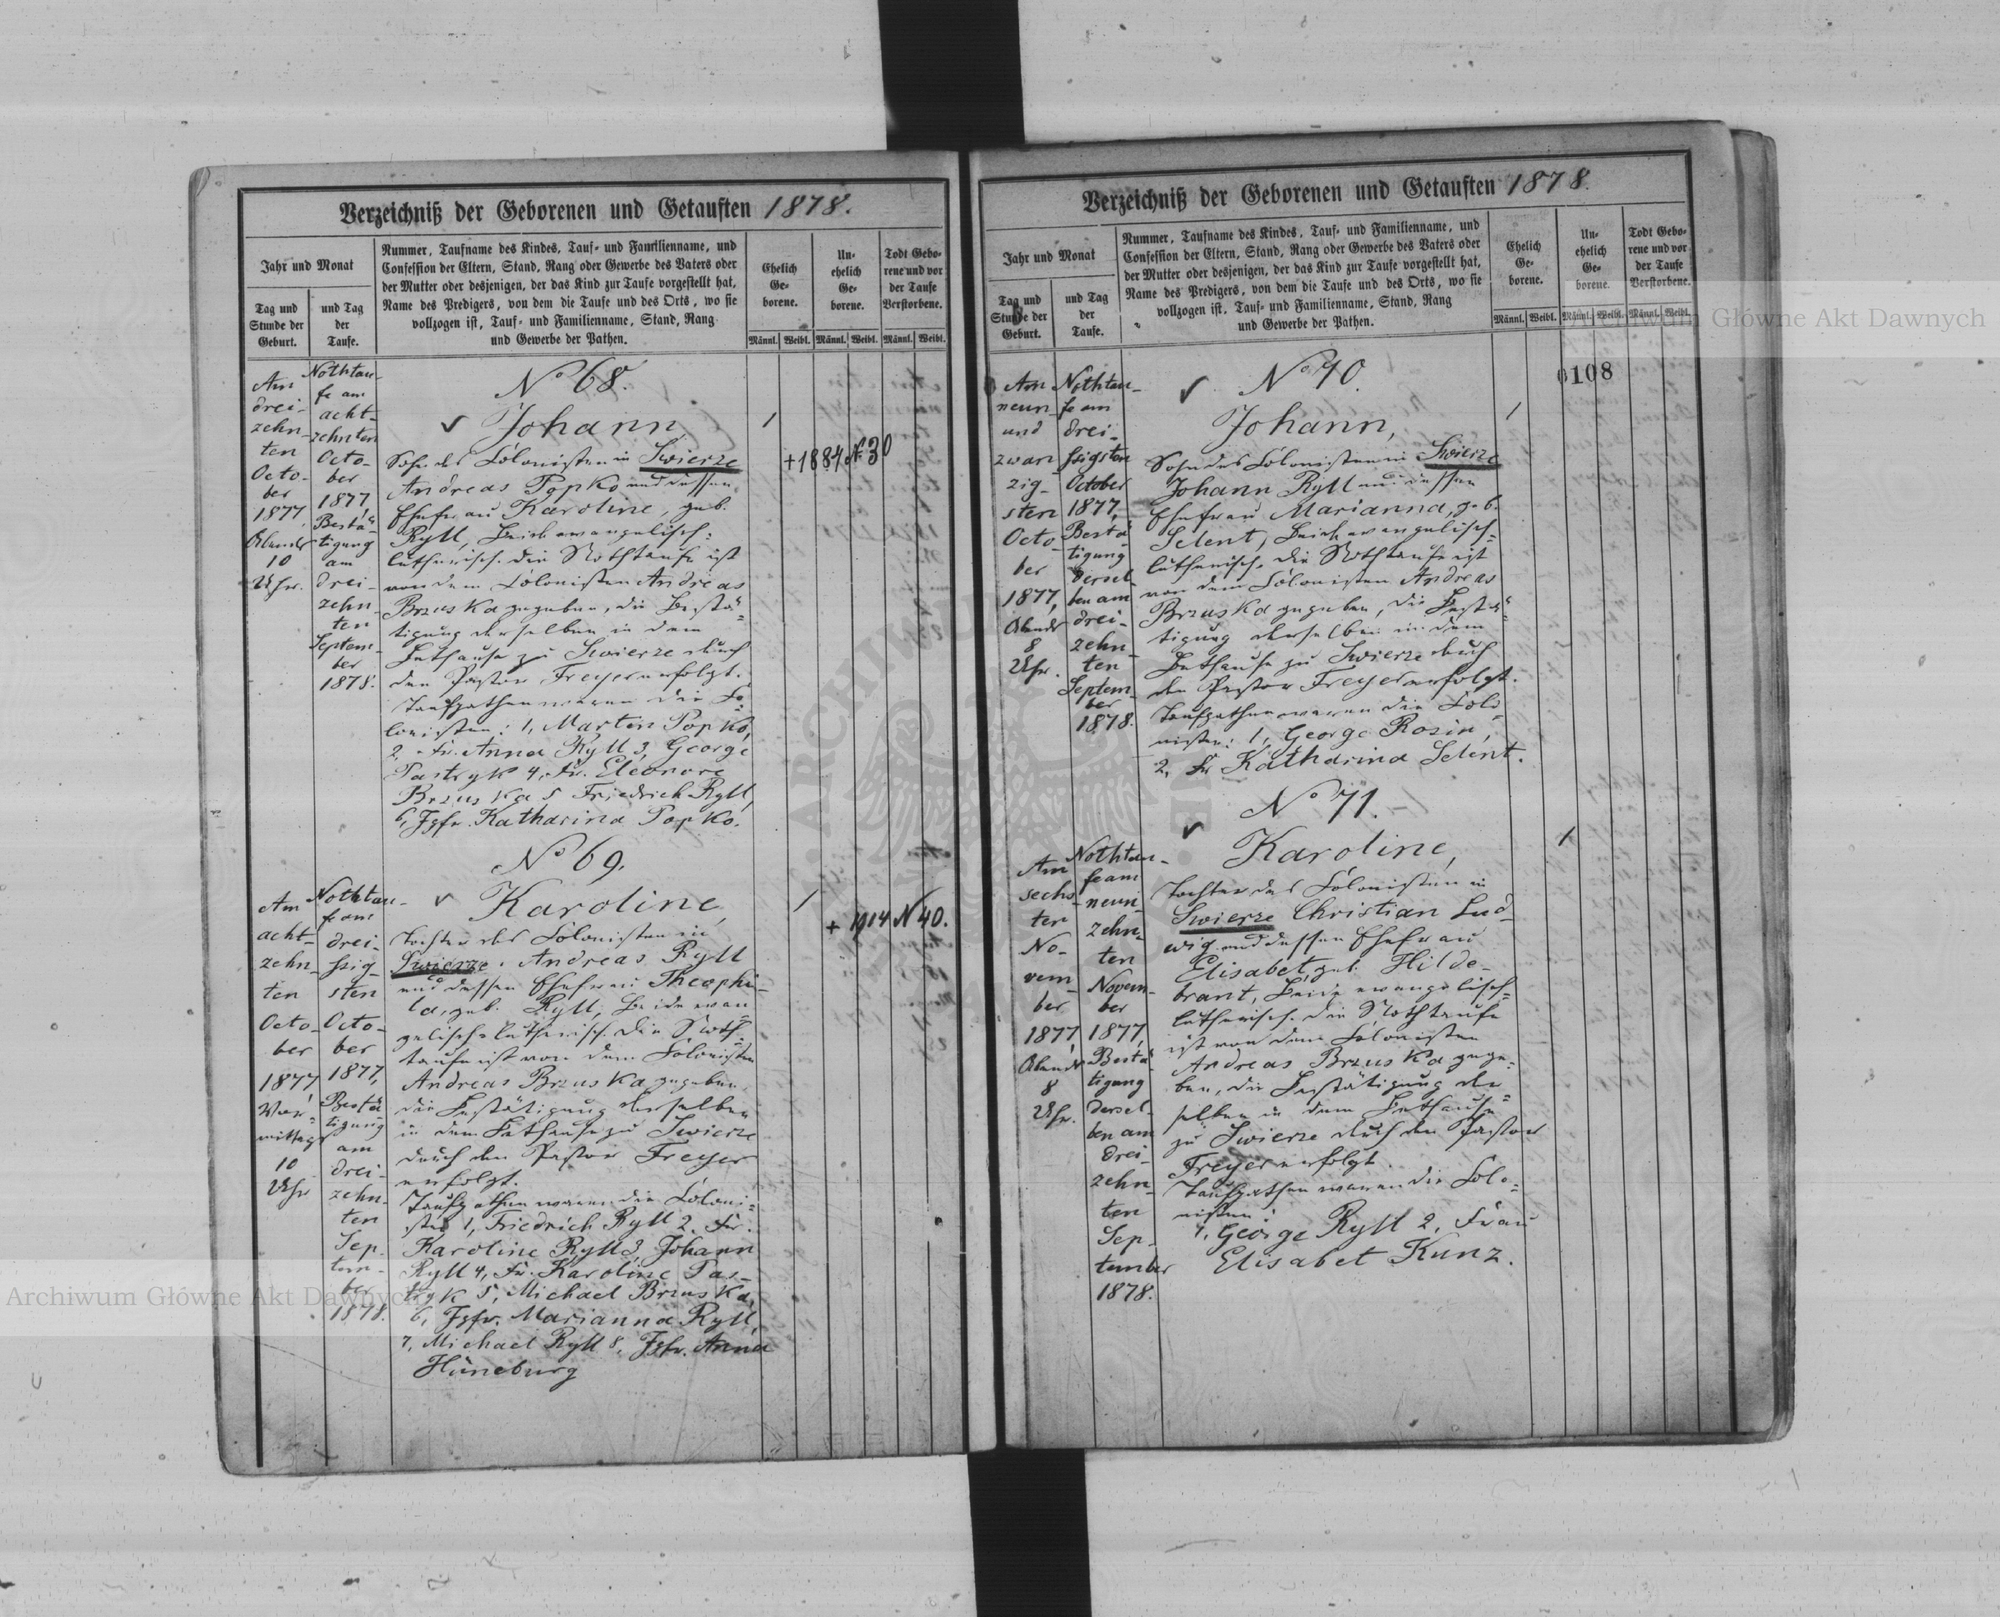 Verzeichniß der Geborenen und Getauften 1878.
Jahr und Monat
Tag und
Stunde der
Geburt.
und Tag
der
Taufe.
Nummer, Taufname des Kindes, Tauf- und Familienname, und
Confession der Eltern, Stand, Rang oder Gewerbe des Vaters oder
der Mutter oder desjenigen, der das Kind zur Taufe vorgestellt hat,
Name des Predigers, von dem die Taufe und des Orts, wo sie
vollzogen ist, Tauf- und Familienname, Stand, Rang
und Gewerbe der Pathen.
Ehelich
Ge-
borene.
Un-
ehelich
Ge-
borene.
Todt Gebo-
rene und vor
der Taufe
Verstorbene.
Männl. Weibl. Männl. Weibl. Männl. Weibl.
Am
drei-
zehn-
ten
Octo-
ber
1877,
Abends
10
Uhr.
Nothtau-
fe am
acht-
zehnten
Octo-
ber
1877,
Bestä-
tigung
am
drei-
zehn-
ten
Septem-
ber
1878.
No 68.
Johann,
Sohn des Colonisten in Swierze
Andreas Popko und dessen
Ehefrau Karoline, geb.
Ryll, Beide evangelisch-
lutherisch. Die Nothtaufe ist
von dem Colonisten Andreas
Brzuska gegeben, die Bestä-
tigung derselben in dem
Bethause zu Swierze durch
den Pastor Freyer erfolgt.
Taufpathen waren die Co-
lonisten: 1, Martin Popko,
2, Fr. Anna Ryll 3, George
Pastryk 4, Fr. Eleonore
Brzuska 5 Friedrich Ryll,
6, Jgfr. Katharina Popko.
+1884 N 30
Am
acht-
zehn-
ten
Octo-
ber
1877
Vor-
mittags
10
Uhr
Nothtau-
fe am
drei-
ssig-
sten
Octo-
ber
1877,
Bestä-
tigung
am
drei-
zehn-
ten
Sep-
tem-
ber
1878.
No 69.
Karoline,
Tochter des Colonisten in
Swierze, Andreas Ryll
und dessen Ehefrau Theophi-
la, geb. Ryll, Beide evan-
gelisch-lutherisch. Die Noth-
taufe ist von dem Colonisten
Andreas Brzuska gegeben,
die Bestätigung derselben
in dem Bethause zu Swierze
durch den Pastor Freyer
erfolgt.
Taufpathen waren die Coloni-
sten 1, Friedrich Ryll 2. Fr.
Karoline Ryll 3, Johann
Ryll 4, Fr. Karoline Pas-
tryk 5, Michael Brzuska,
6, Jgfr. Marianna Ryll,
7, Michael Ryll 8, Jgfr. Anna
Hüneburg
+ 1914 N 40.
Verzeichniß der Geborenen und Getauften 1878.
Jahr und Monat
Tag und
Stunde der
Geburt.
und Tag
der
Taufe.
Nummer, Taufname des Kindes, Tauf- und Familienname, und
Confession der Eltern, Stand, Rang oder Gewerbe des Vaters oder
der Mutter oder desjenigen, der das Kind zur Taufe vorgestellt hat,
Name des Predigers, von dem die Taufe und des Orts, wo sie
vollzogen ist, Tauf- und Familienname, Stand, Rang
und Gewerbe der Pathen.
Ehelich
Ge-
borene.
Un-
ehelich
Ge-
borene.
Todt Gebo-
rene und vor
der Taufe
Verstorbene.
Männl. Weibl. Männl. Weibl. Männl. Weibl.
108
Am
neun
und
zwan
zig-
sten
Octo-
ber
1877,
Abends
8
Uhr.
Nothtau-
fe am
drei-
ssigsten
October
1877,
Bestä-
tigung
dersel-
ben am
drei-
zehn-
ten
Septem-
ber
1878.
No 70.
Johann,
Sohn des Colonisten in Swierze
Johann Ryll und dessen
Ehefrau Marianna, geb.
Selent, Beide evangelisch-
lutherisch. Die Nothtaufe ist
von dem Colonisten Andreas
Brzuska gegeben, die Bestä-
tigung derselben in dem
Bethause zu Swierze durch
den Pastor Freyer erfolgt.
Taufpathen waren die Colo-
nisten: 1, George Rosin,
2, Fr Katharina Selent.
Am
sechs-
ten
No-
vem-
ber
1877,
Abends
8
Uhr.
Nothtau-
fe am
neun-
zehn-
ten
Novem-
ber
1877,
Bestä-
tigung
dersel-
ben am
drei-
zehn-
ten
Sep-
tember
1878.
No 71.
Karoline,
Tochter des Colonisten in
Swierze Christian Lud-
wig und dessen Ehefrau
Elisabet, geb. Hilde-
brant, Beide evangelisch-
lutherisch. Die Nothtaufe
ist von dem Colonisten
Andreas Brzuska gege-
ben, die Bestätigung der-
selben in dem Bethause
zu Swierze durch den Pastor
Freyer erfolgt.
Taufpathen waren die Colo-
nisten:
1, George Ryll 2, Frau
Elisabet Kunz.
Archiwum Główne Akt Dawnych
Archiwum Główne Akt Dawnych